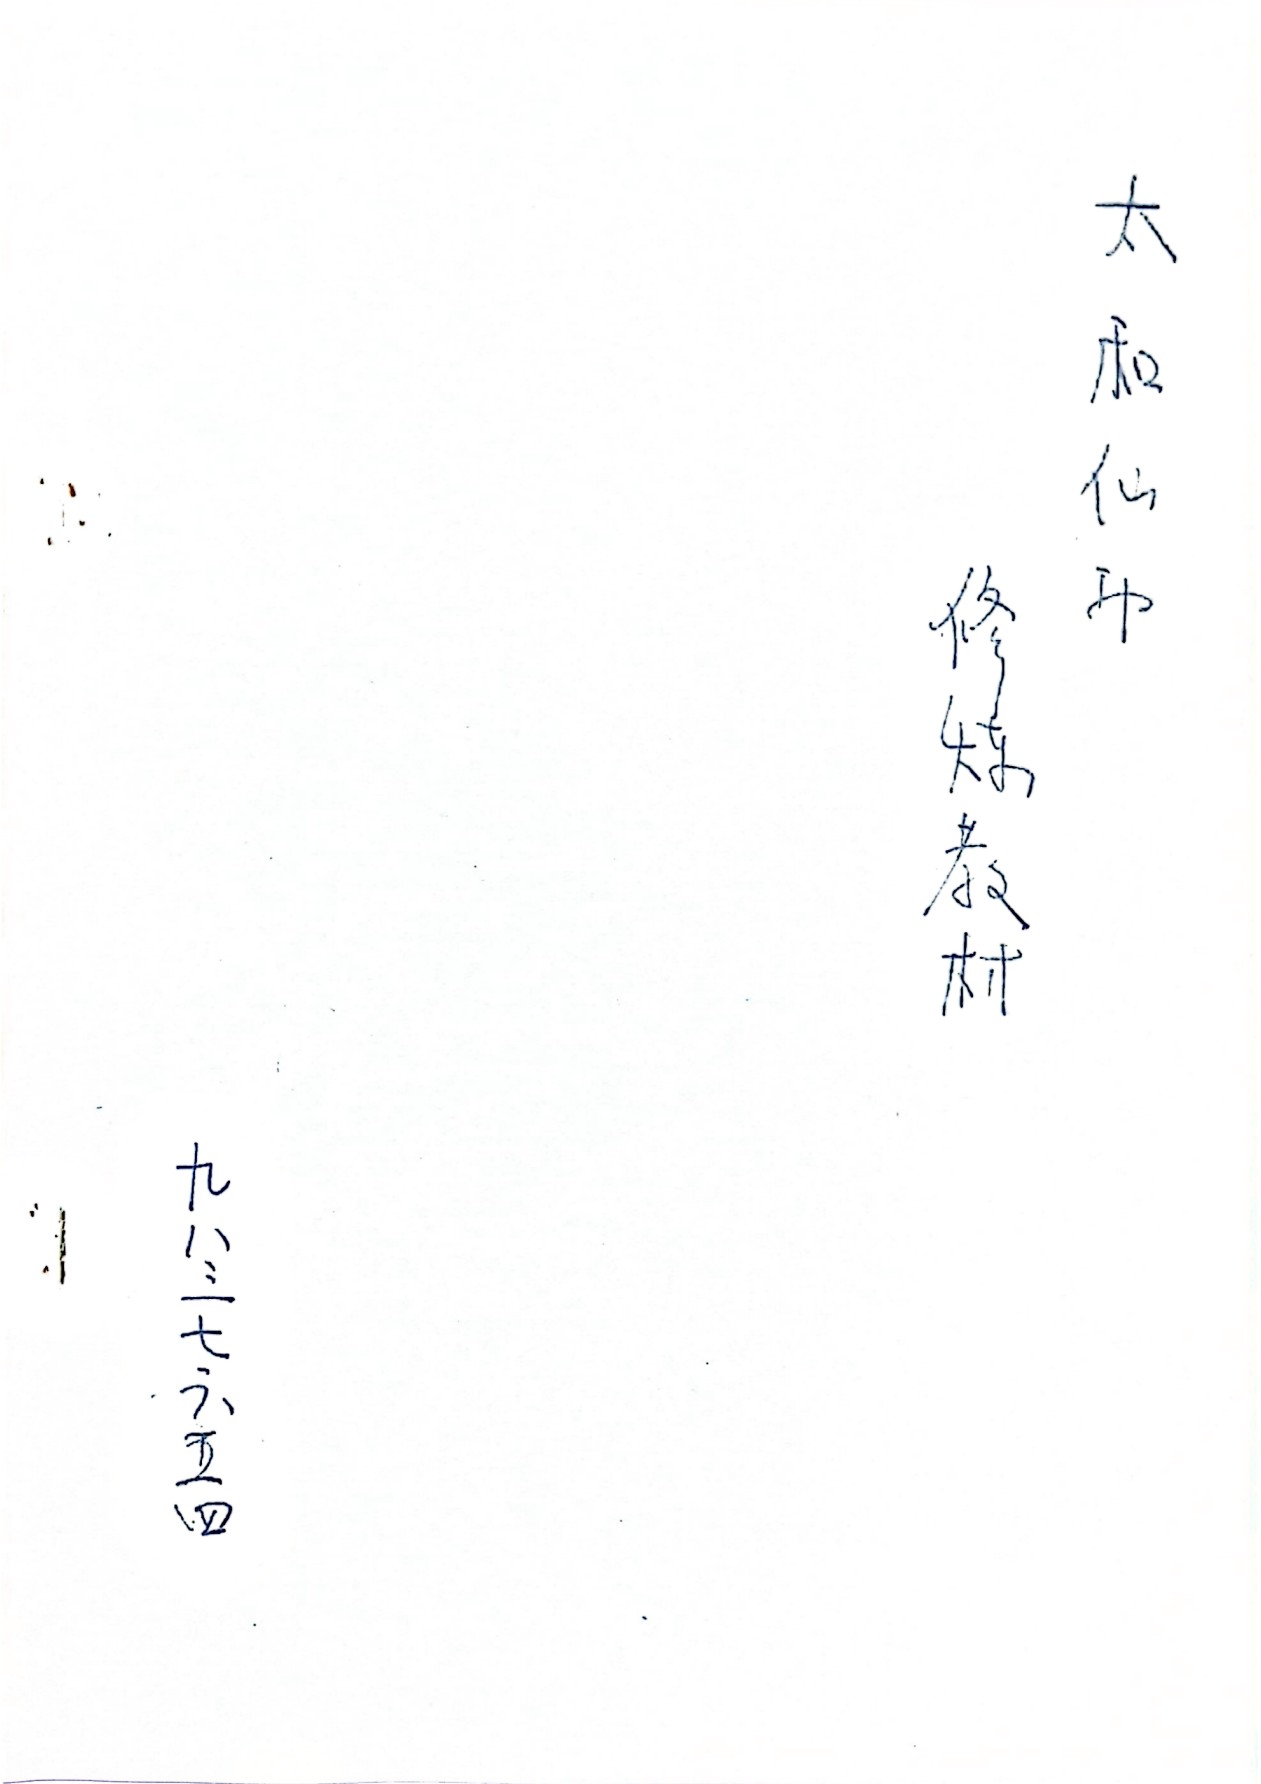 太和仙
修炼教材
九八三七六五四